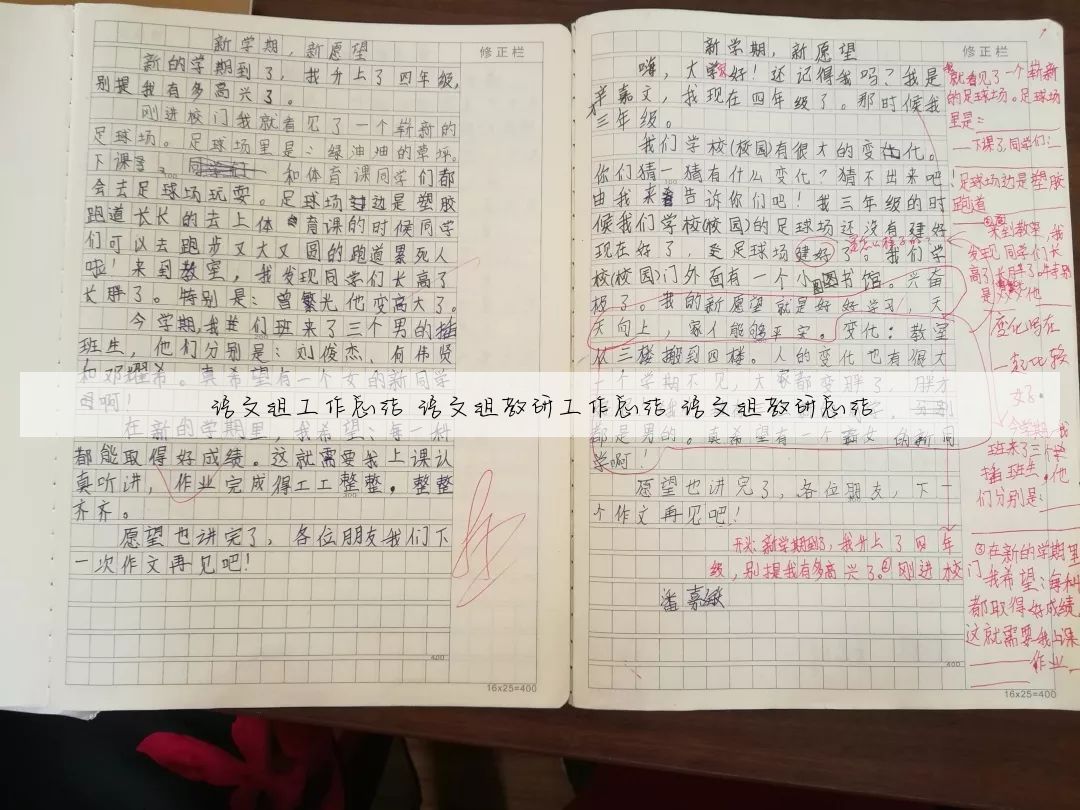 新学期,新愿望
修正栏
新的学期到了,我升上了四年级,
别提我有多高兴了。
刚进校门我就看见了一个崭新的
足球场。足球场里是:绿油油的草坪。
下课 和体育课同学们都
会去足球场玩耍。足球场边是塑胶
跑道长长的去上体育课的时候同学
们可以去跑步又大又圆的跑道累死人
啦!来到教室,我发现同学们长高了
长胖了。特别是:曾繁光他变高大了。
今学期,我们班来了三个男的插
班生,他们分别是:刘俊杰、何伟贤
和邓耀希。真希望有一个女的新同学
啊!
在新的学期里,我希望:每一科
都能取得好成绩。这就需要我上课认
真听讲,作业完成得工工整整。整整
齐齐。
愿望也讲完了,各位朋友我们下
一次作文再见吧!
400
16x25=400
语文组工作总结 语文组教研工作总结 语文组教研总结
新学期,新愿望
修正栏
嗨,大家好!还记得我吗?我是
嘉文,我现在四年级了。那时候我
三年级。
我们学校(校园)有很大的变化。
你们猜一猜有什么变化?猜不出来吧!
由我来告诉你们吧!我三年级的时
候我们学校(校园)的足球场还没有建好
现在好了,足球场建好了。我们学
校(校园)门外面有一个小图书馆。兴奋
极了。我的新愿望就是好好学习,天
天向上,家人能够平安。变化:教室
从三楼搬到四楼。人的变化也有很大
个学期不见,大家都变胖了,胖才
都是男的。真希望有一个女的新同
学啊!
愿望也讲完了,各位朋友,下一
个作文再见吧!
开头:新学期到了,我升上了四年
级,别提我有多高兴了。刚进校
潘嘉敏
400
16x25=400
就看见了一个崭新
的足球场。足球场
里是:
下课了,同学们:
足球场边是塑胶
跑道
来到教室,我
发现同学们长
高了长胖了。特别
是 他
变化写在
一起比较
好。
今学期,我
班来了三个
插班生,他
们分别是:
③在新的学期里
我希望:每科
都取得好成绩
这就需要我上课
作业